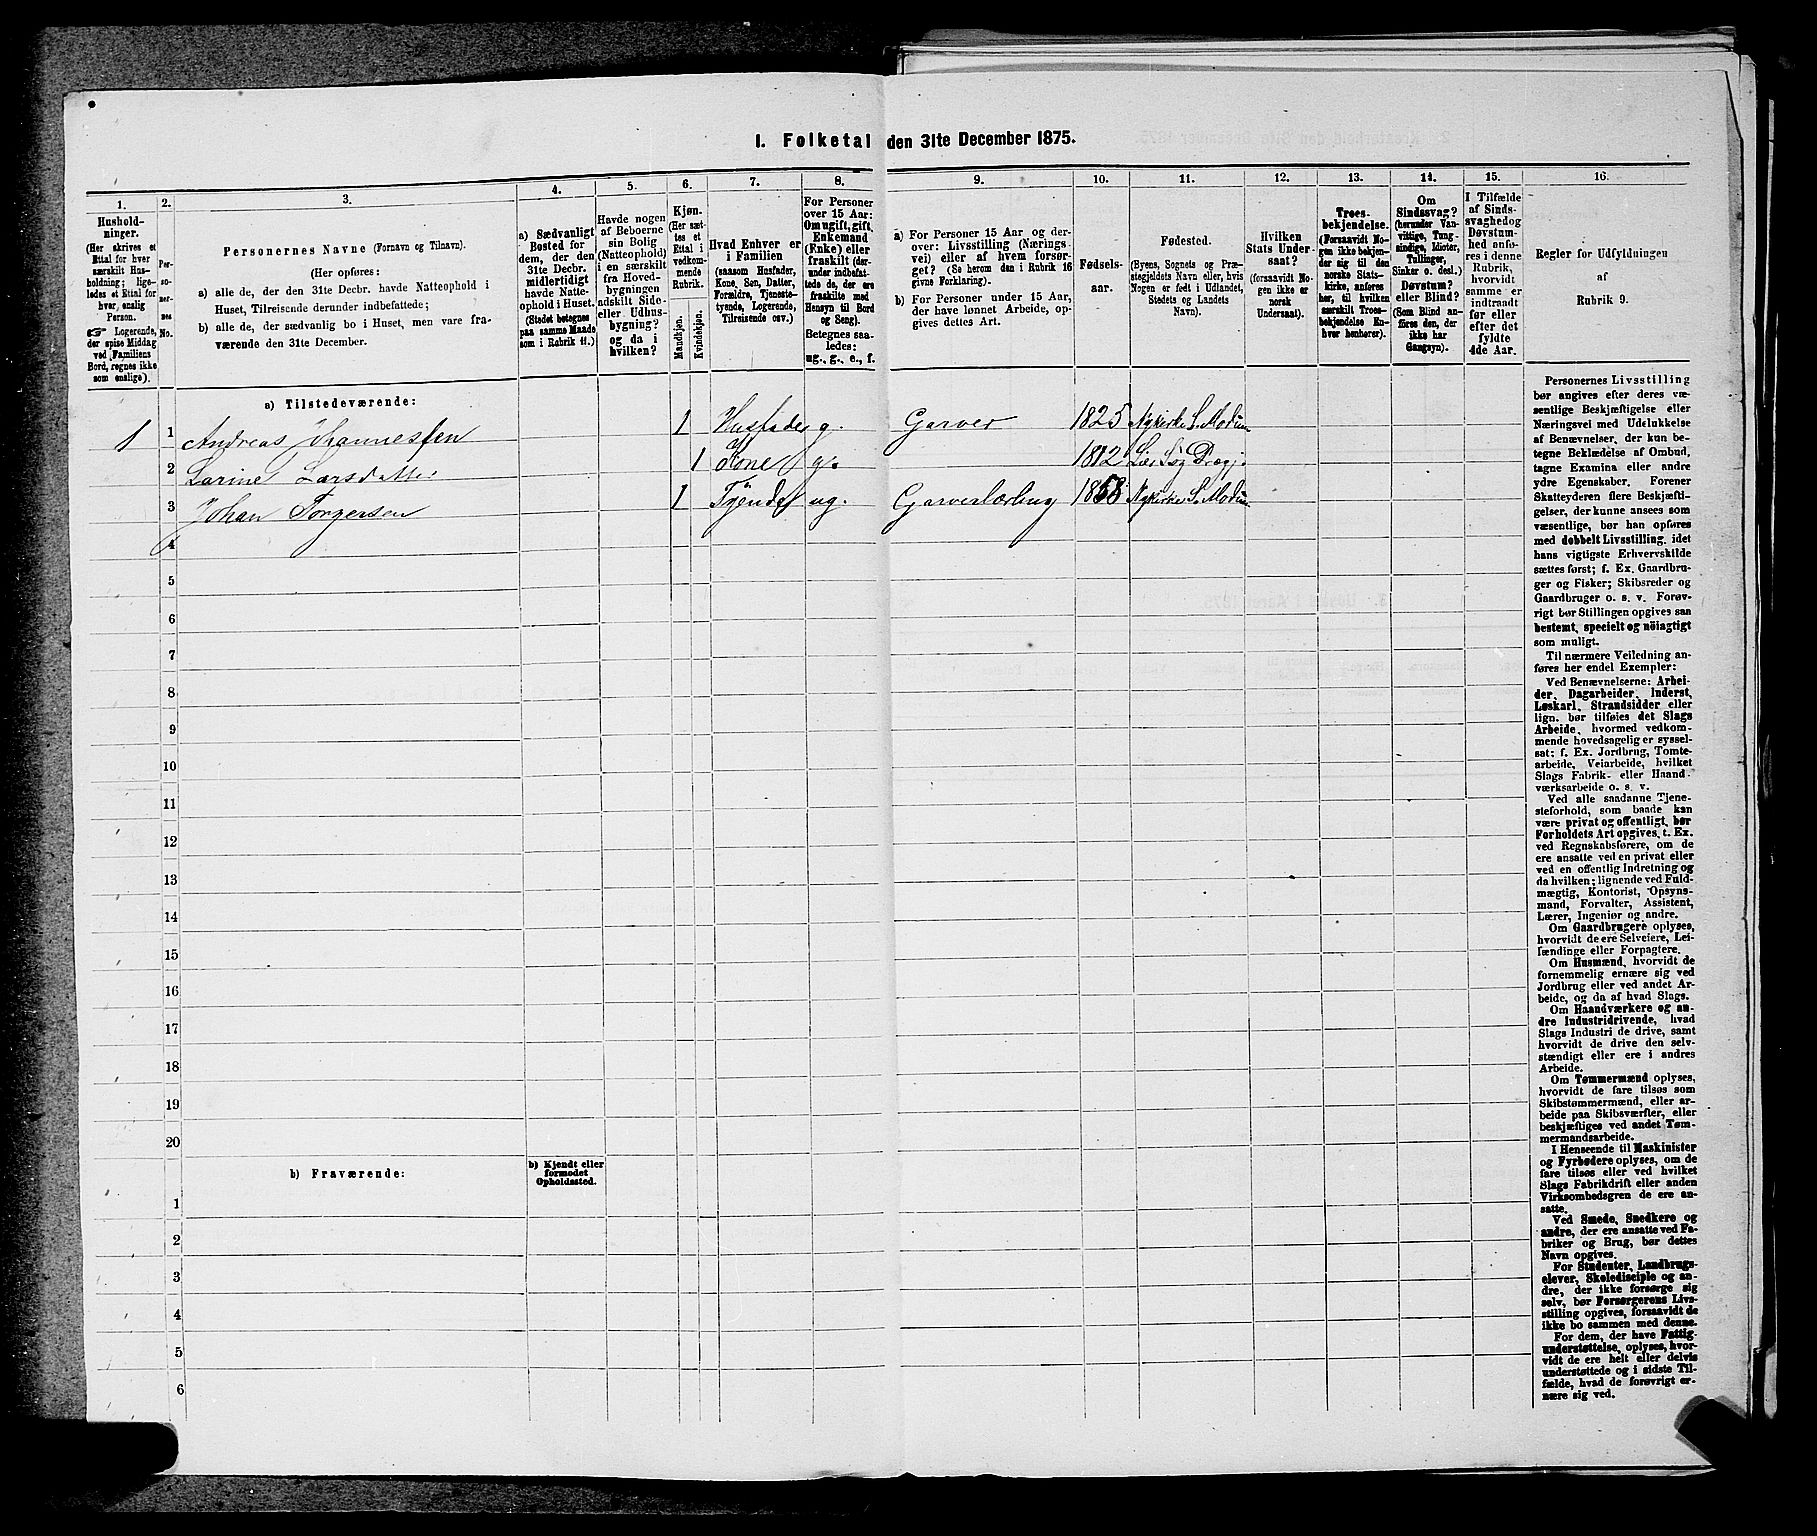 I. Folketal den 31te December 1875.
1.
Hushold-
ninger.
(Her skrives et
Ettal for hver
særskilt Hus-
holdning; lige-
ledes et Ettal for
hver, enslig
Person.
☞ Logerende,
der spise Middag
ved Familiens
Bord, regnes ikke
som enslige).
2.
Per-
so-
ner-
nes
No.
3.
Personernes Navne (Fornavn og Tilnavn).
(Her opføres:
a) alle de, der den 31te Decbr. havde Natteophold i
Huset, Tilreisende derunder indbefattede;
b) alle de, der sædvanlig bo i Huset, men vare fra-
værende den 31te December.
4.
a) Sædvanligt
Bosted for
dem, der den
31te Decbr.
midlertidigt
havde Natte-
ophold i Huset.
(Stedet betegnes
paa samme Maade
som i Rubrik 11.)
5.
Havde nogen
af Beboerne
sin Bolig
(Natteophold)
i en særskilt
fra Hoved-
bygningen
adskilt Side-
eller Udhus-
bygning?
og da i
hvilken?
6.
Kjøn.
(Her sæt-
tes et
Ettal i
vedkom-
mende
Rubrik.
Mandkjøn.
Kvindekjøn.
7.
Hvad Enhver er
i Familien
(saasom Husfader,
Kone, Søn, Datter,
Forældre, Tjeneste-
tyende, Logerende,
Tilreisende osv.)
8.
For Personer
over 15 Aar:
Om ugift, gift,
Enkemand
(Enke) eller
fraskilt (der-
under indbefat-
tede de, der ere
fraskilte med
Hensyn til Bord
og Seng).
Betegnes saa-
ledes:
ug., g., e., f.
9.
a) For Personer 15 Aar og der-
over: Livsstilling (Nærings-
vei) eller af hvem forsør-
get? (Se herom den i Rubrik 16
givne Forklaring).
b) For Personer under 15 Aar,
der have lønnet Arbeide, op-
gives dettes Art.
10.
Fødsels-
aar.
11.
Fødested.
(Byens, Sognets og Præ-
stegjeldets Navn eller, hvis
Nogen er født i Udlandet,
Stedets og Landets
Navn).
12.
Hvilken
Stats Under-
saat?
(forsaavidt No-
gen ikke er
norsk
Undersaat).
13.
Troes-
bekjendelse.
(Forsaavidt No-
gen ikke bekjen-
der sig til den
norske Stats-
kirke, anføres
her, til hvilken
særskilt Troes-
bekjendelse En-
hver henhører).
14.
Om
Sindssvag?
(herunder Van-
vittige, Tung-
sindige, Idioter,
Tullinger,
Sinker o. desl.)
Døvstum?
eller Blind?
(Som Blind an-
føres den, der
ikke har
Gangsyn).
15.
I Tilfælde
af Sinds-
svaghed og
Døvstum-
hed anfø-
res i denne
Rubrik,
hvorvidt
samme er
indtraadt
før eller
efter det
fyldte
4de Aar.
16.
Regler for Udfyldningen
af
Rubrik 9.
a) Tilstedeværende:
1 1 Andreas Hannessen 1 Husfader g. Garver 1825 Nykirke S. Modum
2 Larine Larsdatter 1 Kone g. 1812 Lier
3 Johan Torgersen 1 Tyende ug. Garverlærling 1858 Nykirke S. Modum
4
5
6
7
8
9
10
11
12
13
14
15
16
17
18
19
20
b) Fraværende:
b) Kjendt eller
formodet
Opholdssted.
1
2
3
4
5
6
Personernes Livsstilling
bør angives efter deres væ-
sentlige Beskjæftigelse eller
Næringsvei med Udelukkelse
af Benævnelser, der kun be-
tegne Beklædelse af Ombud,
tagne Examina eller andre
ydre Egenskaber. Forener
Skatteyderen flere Beskjæfti-
gelser, der kunne ansees som
væsentlige, bør han opføres
med dobbelt Livsstilling, idet
hans vigtigste Erhvervskilde
sættes først; f. Ex. Gaardbru-
ger og Fisker; Skibsreder og
Gaardbruger o. s. v. Forøv-
rigt bør Stillingen opgives saa
bestemt, specielt og nöiagtigt
som muligt.
Til nærmere Veiledning an-
føres her endel Exempler:
Ved Benævnelserne: Arbei-
der, Dagarbeider, Inderst,
Løskarl, Strandsidder eller
lign. bør tilføies det Slags
Arbeide, hvormed vedkom-
mende hovedsagelig er syssel-
sat; f. Ex. Jordbrug, Tomte-
arbeide, Veiarbeide, hvilket
Slags Fabrik- eller Haand-
værksarbeide o. s. v.
Ved alle saadanne Tjene-
steforhold, som baade kan
være privat og offentligt, bør
Forholdets Art opgives, t. Ex.
ved Regnskabsførere, om de
ere ansatte ved en privat eller
ved en offentlig Indretning og
da hvilken; lignende ved Fuld-
mægtig, Kontorist, Opsyns-
mand, Forvalter, Assistent,
Lærer, Ingeniør og andre.
Om Gaardbrugere oplyses,
hvorvidt de ere Selveiere, Lei-
lændinge eller Forpagtere.
Om Husmænd, hvorvidt de
fornemmelig ernære sig ved
Jordbrug eller ved andet Ar-
beide, og da af hvad Slags.
Om Haandværkere og an-
dre Industridrivende, hvad
Slags Industri de drive, samt
hvorvidt de drive den selv-
stændigt eller ere i andres
Arbeide.
Om Tømmermænd oplyses,
hvorvidt de fare tilsøs som
Skibstømmermænd, eller ar-
beide paa Skibsværfter, eller
beskjæftiges ved andet Tøm-
mermandsarbeide.
I Henseende til Maskinister
og Fyrbødere oplyses, om de
fare tilsøs eller ved hvilket
Slags Fabrikdrift eller anden
Virksomhedsgren de ere an-
satte.
Ved Smede, Snedkere og
andre, der ere ansatte ved Fa-
briker og Brug, bør dettes
Navn opgives.
For Studenter, Landbrugs-
elever, Skoledisciple og an-
dre, der ikke forsørge sig
selv, bør Forsørgerens Livs-
stilling opgives, forsaavidt de
ikke bo sammen med denne.
For dem, der have Fattig-
understøttelse, oplyses, hvor-
vidt de ere helt eller delvis
understøttede og i sidste Til-
fælde, hvad de forøvrigt er-
nære sig ved.